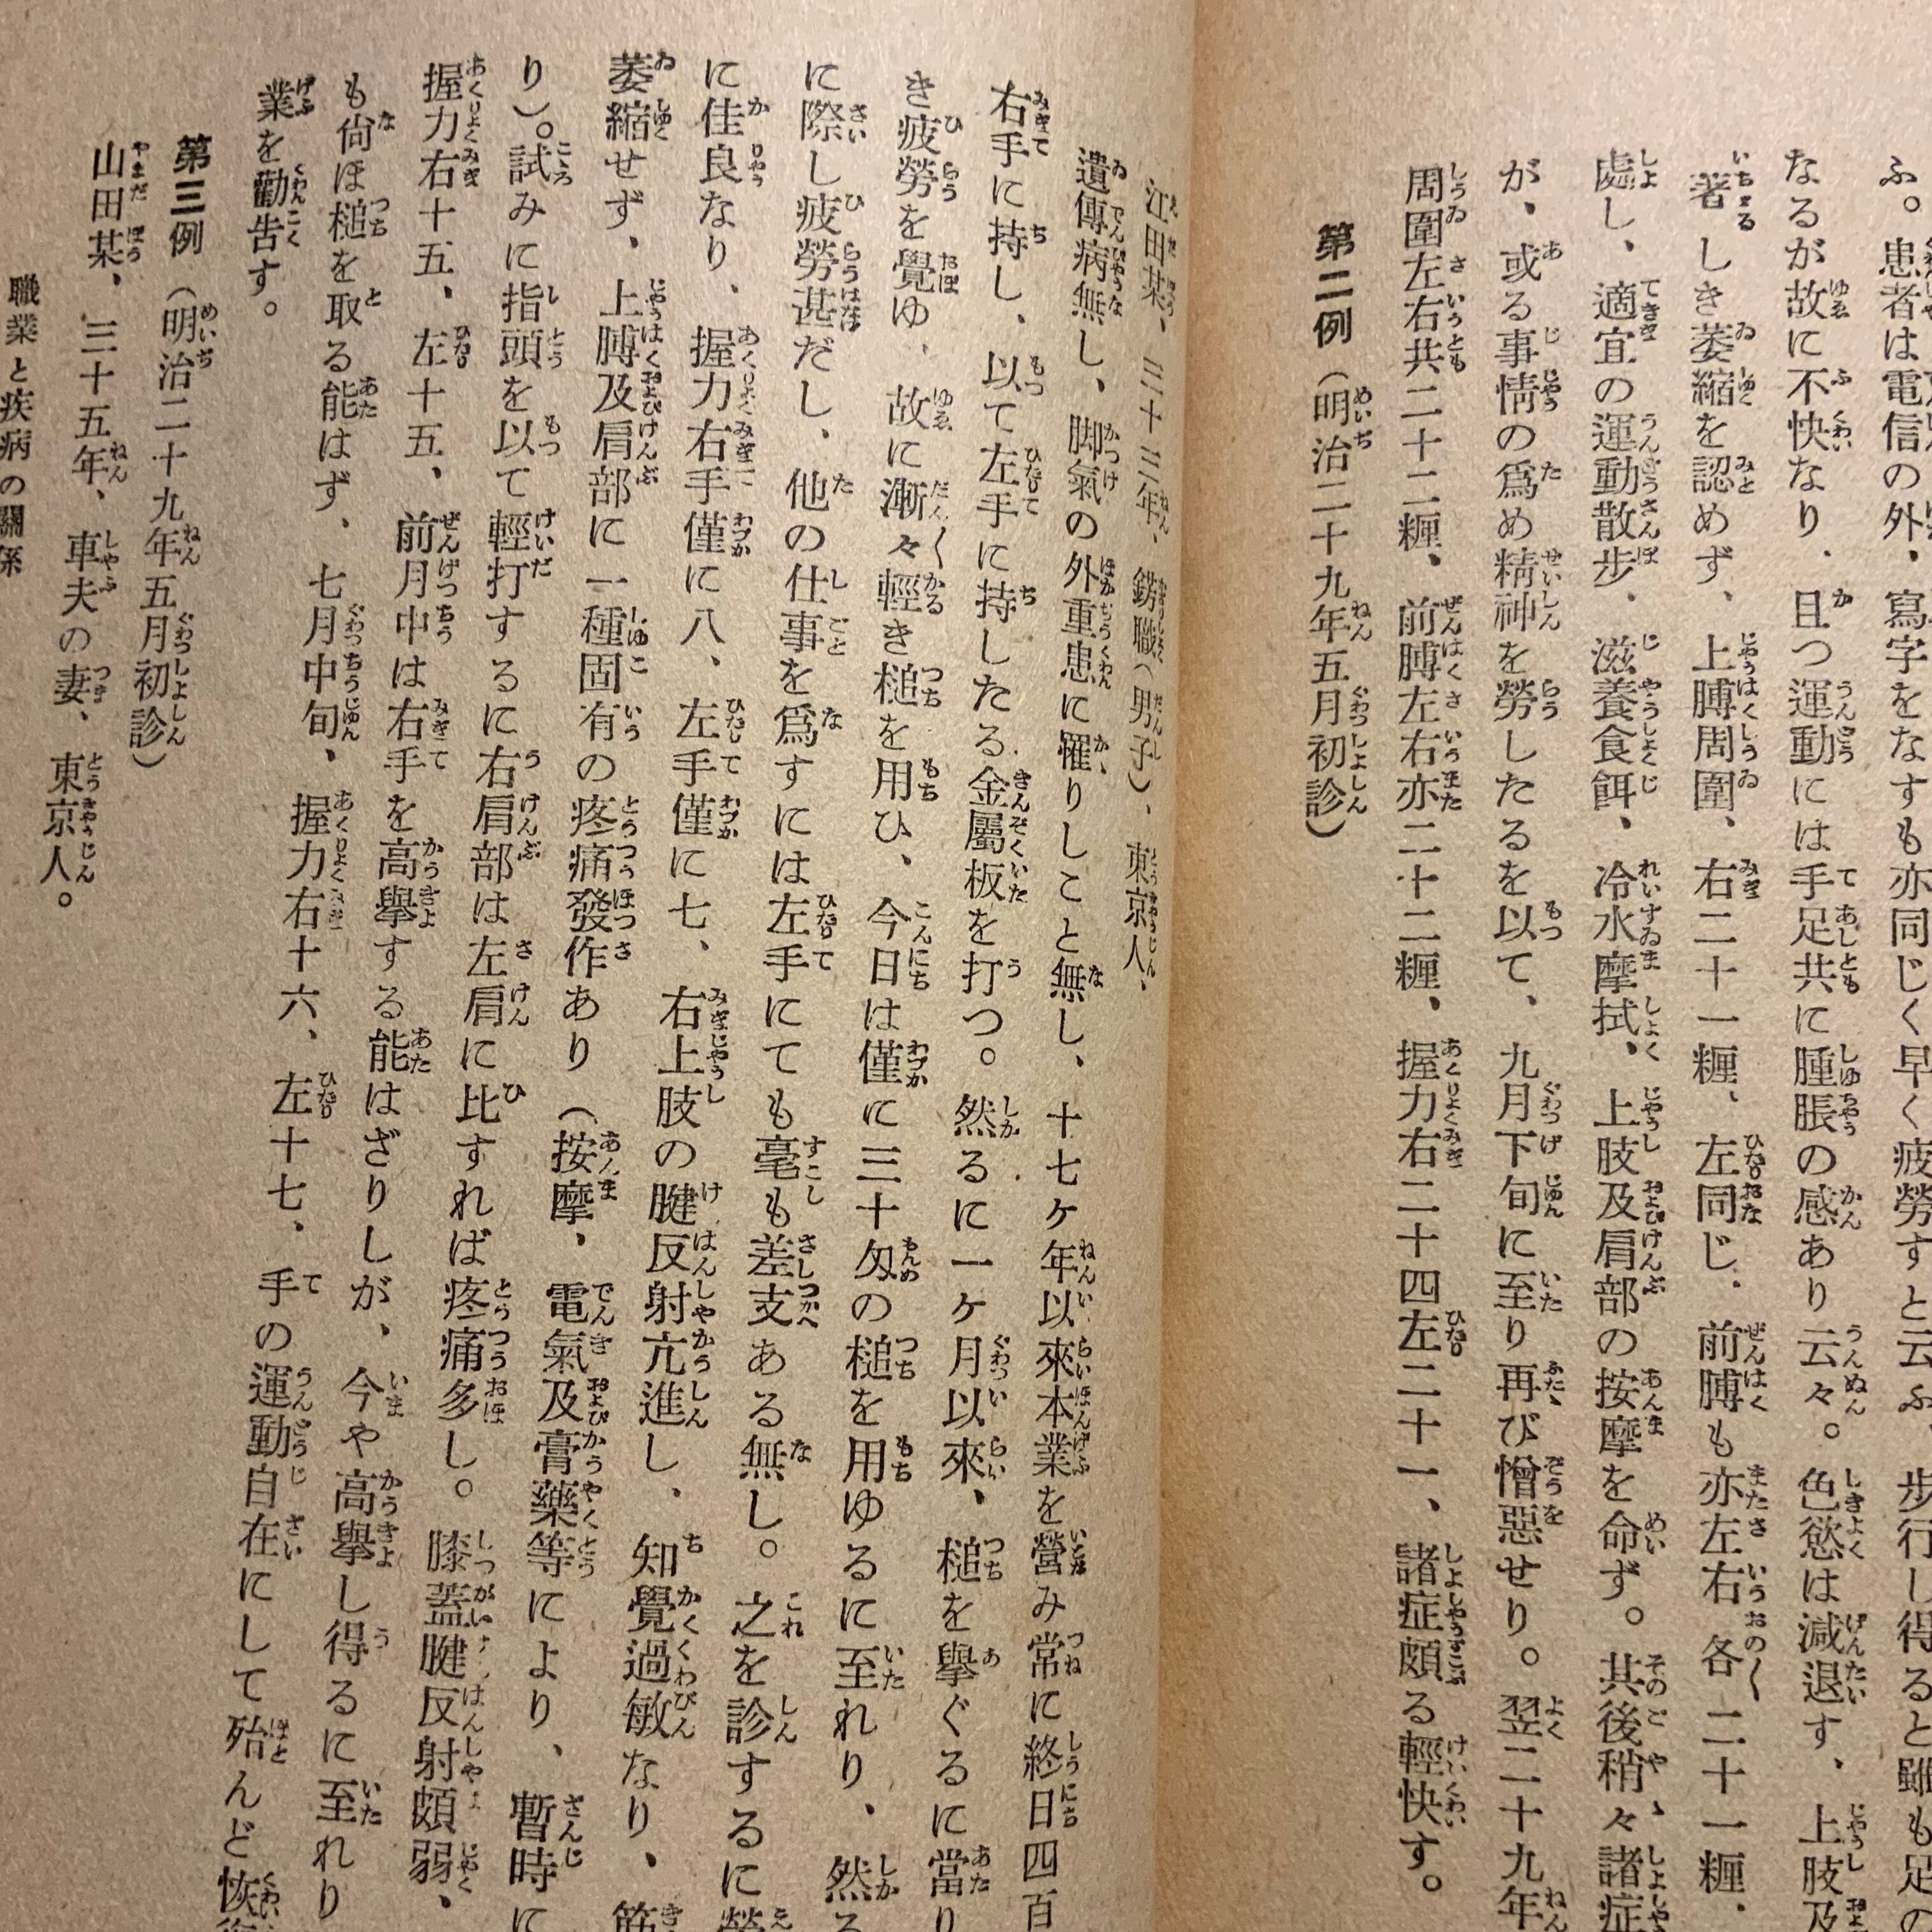 ふ。患者は電信の外、寫字をなすも亦同じく早く疲勞すと云ふ、歩行し得ると雖も足の
なるが故に不快なり、且つ運動には手足共に腫脹の感あり云々。色慾は減退す、上肢及
著しき萎縮を認めず、上膊周圍、右二十一糎、左同じ、前膊も亦左右各二十一糎、
處し、適宜の運動散步、滋養食餌、冷水摩拭、上肢及肩部の按摩を命ず。其後稍々諸症
が、或る事情の爲め精神を勞したるを以て、九月下旬に至り再び憎惡せり。翌二十九年
周圍左右共二十二糎、前膊左右亦二十二糎、握力右二十四左二十一、諸症頗る輕快す。
第二例（明治二十九年五月初診）
江田某、三十三年、錺職（男子）、東京人、
遺傳病無し、脚氣の外重患に罹りしこと無し、十七ヶ年以來本業を營み常に終日四百
右手に持し、以て左手に持したる金屬板を打つ。然るに一ヶ月以來、槌を擧ぐるに當り
き疲勞を覺ゆ、故に漸々輕き槌を用ひ、今日は僅に三十匁の槌を用ゆるに至れり、然る
に際し疲勞甚だし、他の仕事を爲すには左手にても毫も差支ある無し。之を診するに
に佳良なり、握力右手僅に八、左手僅に七、右上肢の腱反射亢進し、知覺過敏なり、筋
萎縮せず、上膊及肩部に一種固有の疼痛發作あり（按摩、電氣及膏藥等により、暫時に
り）。試みに指頭を以て輕打するに右肩部は左肩に比すれば疼痛多し。膝蓋腱反射頗弱、
握力右十五、左十五、前月中は右手を高擧する能はざりしが、今や高擧し得るに至れり
も尙ほ槌を取る能はず、七月中旬、握力右十六、左十七、手の運動自在にして殆んど恢
業を勸吿す。
第三例（明治二十九年五月初診）
山田某、三十五年、車夫の妻、東京人。
職業と疾病の關係